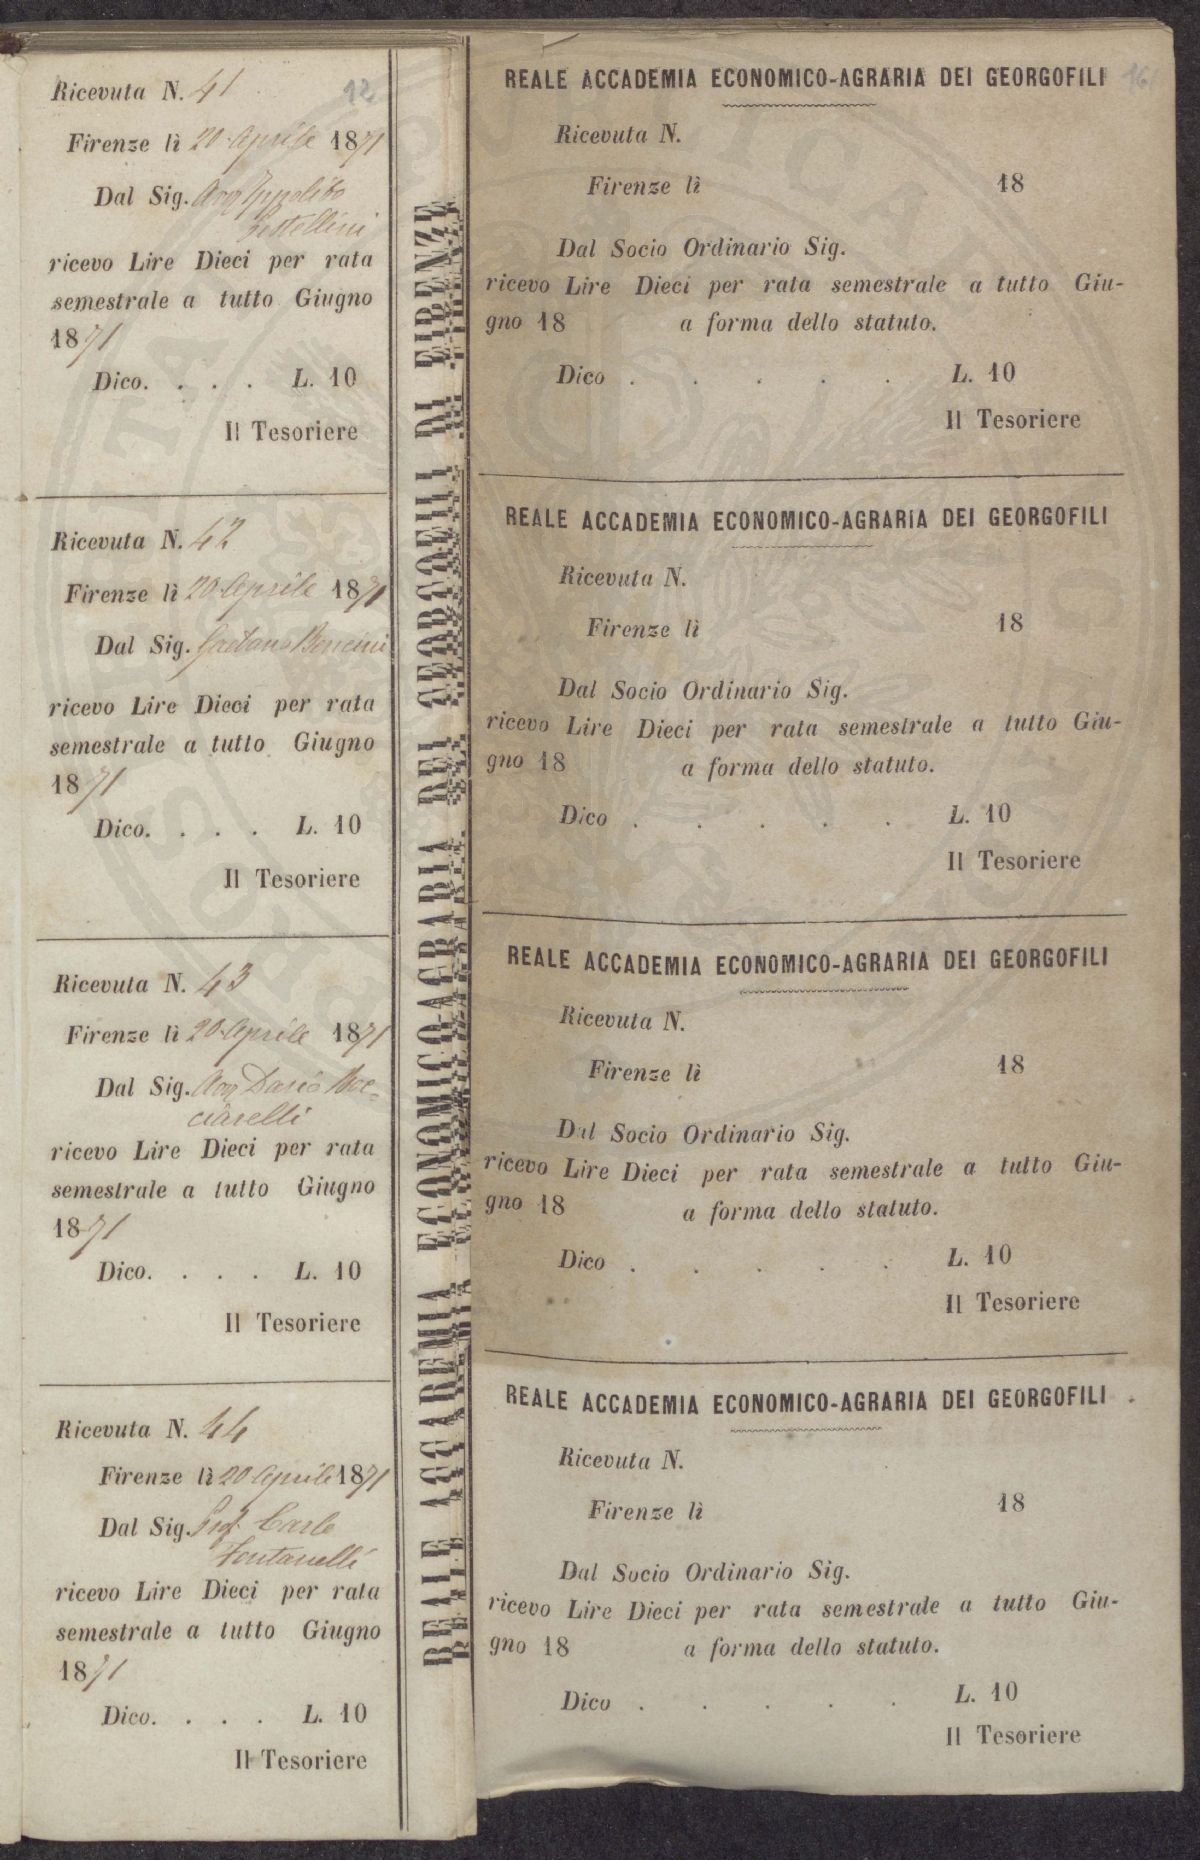 12
Ricevuta N. 41
Firenze lì 20 Aprile 1871
Dal Sig. Avv Ippolito
Sestellini
ricevo Lire Dieci per rata
semestrale a tutto Giugno
1871
Dico. . . . L. 10
Il Tesoriere
Ricevuta N. 42
Firenze lì 20 Aprile 1871
Dal Sig. Gaetano Boncini
ricevo Lire Dieci per rata
semestrale a tutto Giugno
1871
Dico. . . . L. 10
Il Tesoriere
Ricevuta N. 43
Firenze lì 20 Aprile 1871
Dal Sig. Avv Dario
ricevo Lire Dieci per rata
semestrale a tutto Giugno
1871
Dico. . . . L. 10
Il Tesoriere
Ricevuta N. 44
Firenze lì 20 Aprile 1871
Dal Sig. Prof. Carlo
Fontanelli
ricevo Lire Dieci per rata
semestrale a tutto Giugno
1871
Dico. . . . L. 10
Il Tesoriere
REALE ACCADEMIA ECONOMICO-AGRARIA DEI GEORGOFILI DI FIRENZE
REALE ACCADEMIA ECONOMICO-AGRARIA DEI GEORGOFILI
Ricevuta N.
Firenze lì 18
Dal Socio Ordinario Sig.
ricevo Lire Dieci per rata semestrale a tutto Giu-
gno 18 a forma dello statuto.
Dico . . . . . L. 10
Il Tesoriere
REALE ACCADEMIA ECONOMICO-AGRARIA DEI GEORGOFILI
Ricevuta N.
Firenze lì 18
Dal Socio Ordinario Sig.
ricevo Lire Dieci per rata semestrale a tutto Giu-
gno 18 a forma dello statuto.
Dico . . . . . L. 10
Il Tesoriere
REALE ACCADEMIA ECONOMICO-AGRARIA DEI GEORGOFILI
Ricevuta N.
Firenze lì 18
Dal Socio Ordinario Sig.
ricevo Lire Dieci per rata semestrale a tutto Giu-
gno 18 a forma dello statuto.
Dico . . . . . L. 10
Il Tesoriere
REALE ACCADEMIA ECONOMICO-AGRARIA DEI GEORGOFILI
Ricevuta N.
Firenze lì 18
Dal Socio Ordinario Sig.
ricevo Lire Dieci per rata semestrale a tutto Giu-
gno 18 a forma dello statuto.
Dico . . . . . L. 10
Il Tesoriere